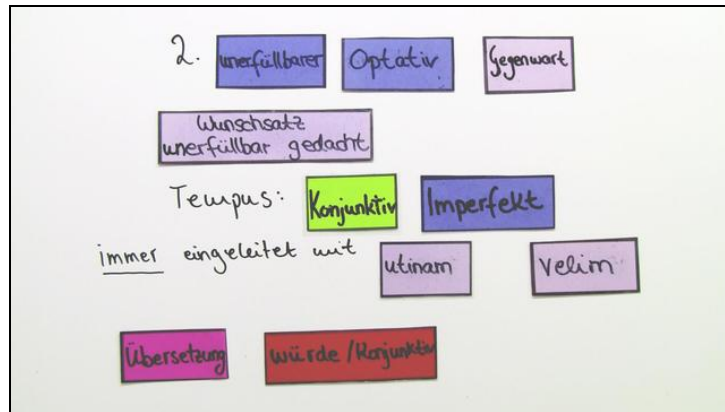 2. unerfüllbarer Optativ Gegenwart
Wunschsatz
unerfüllbar gedacht
Tempus: Konjunktiv Imperfekt
immer eingeleitet mit utinam velim
Übersetzung würde/Konjunktiv